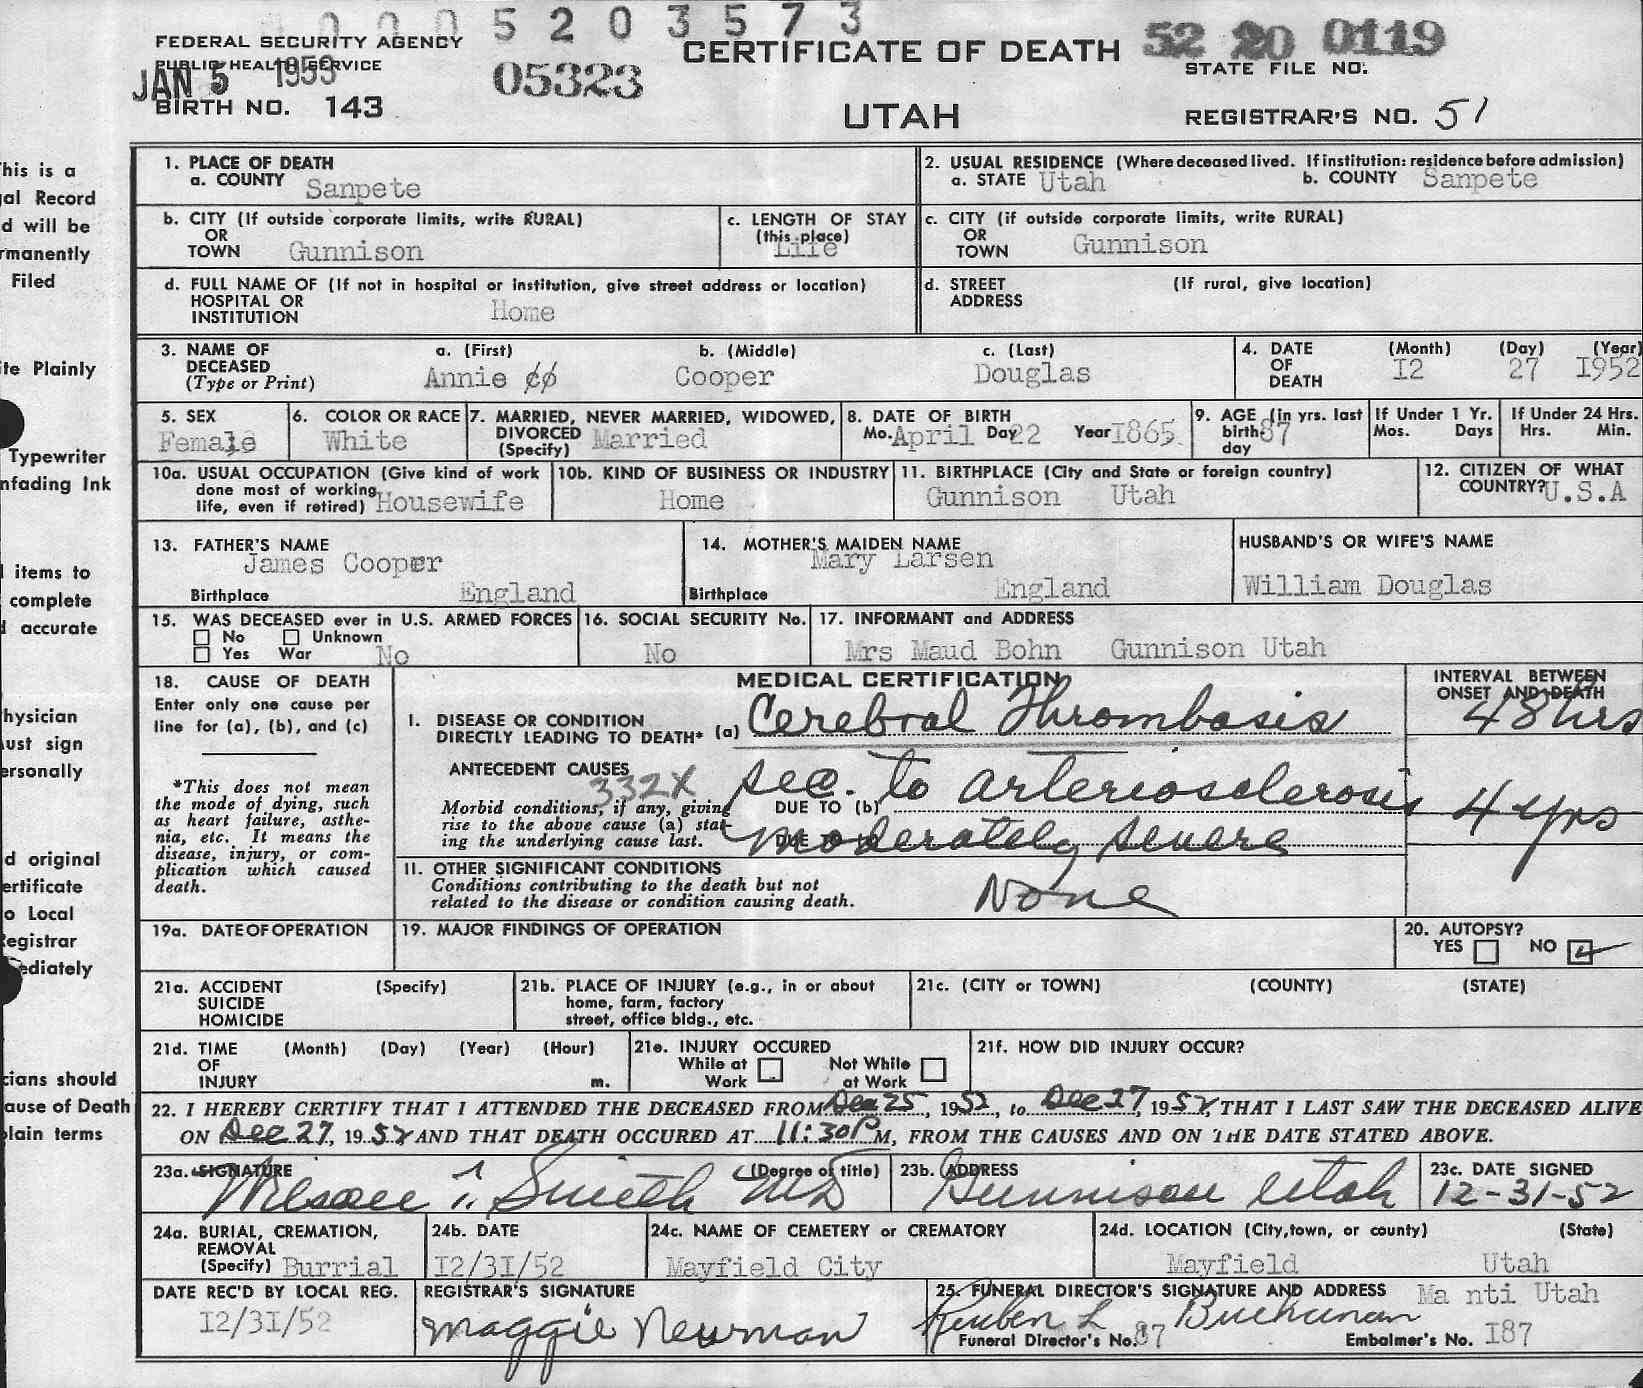 0005203573
FEDERAL SECURITY AGENCY
PUBLIC HEALTH SERVICE
JAN 5 1953
BIRTH NO. 143
05323
CERTIFICATE OF DEATH
UTAH
52 20 0119
STATE FILE NO.
REGISTRAR'S NO. 51
This is a
gal Record
d will be
rmanently
Filed
ite Plainly
Typewriter
nfading Ink
l items to
complete
d accurate
hysician
ust sign
ersonally
d original
ertificate
o Local
egistrar
ediately
cians should
ause of Death
plain terms
1. PLACE OF DEATH
a. COUNTY Sanpete
2. USUAL RESIDENCE (Where deceased lived. If institution: residence before admission)
a. STATE Utah b. COUNTY Sanpete
b. CITY (If outside corporate limits, write RURAL)
OR
TOWN Gunnison
c. LENGTH OF STAY
(this place)
Life
c. CITY (if outside corporate limits, write RURAL)
OR
TOWN Gunnison
d. FULL NAME OF (If not in hospital or institution, give street address or location)
HOSPITAL OR
INSTITUTION Home
d. STREET (If rural, give location)
ADDRESS
3. NAME OF
DECEASED
(Type or Print)
a. (First) b. (Middle) c. (Last)
Annie Cooper Douglas
4. DATE
OF
DEATH
(Month) (Day) (Year)
I2 27 I952
5. SEX
Female
6. COLOR OR RACE
White
7. MARRIED, NEVER MARRIED, WIDOWED,
DIVORCED
(Specify) Married
8. DATE OF BIRTH
Mo. April Day 22 Year I865
9. AGE (in yrs. last
birth
day
87
If Under 1 Yr.
Mos. Days
If Under 24 Hrs.
Hrs. Min.
10a. USUAL OCCUPATION (Give kind of work
done most of working
life, even if retired) Housewife
10b. KIND OF BUSINESS OR INDUSTRY
Home
11. BIRTHPLACE (City and State or foreign country)
Gunnison Utah
12. CITIZEN OF WHAT
COUNTRY? U.S.A
13. FATHER'S NAME
James Cooper
Birthplace England
14. MOTHER'S MAIDEN NAME
Mary Larsen
Birthplace England
HUSBAND'S OR WIFE'S NAME
William Douglas
15. WAS DECEASED ever in U.S. ARMED FORCES
No Unknown
Yes War No
16. SOCIAL SECURITY No.
No
17. INFORMANT and ADDRESS
Mrs Maud Bohn Gunnison Utah
18. CAUSE OF DEATH
Enter only one cause per
line for (a), (b), and (c)
*This does not mean
the mode of dying, such
as heart failure, asthe-
nia, etc. It means the
disease, injury, or com-
plication which caused
death.
MEDICAL CERTIFICATION
I. DISEASE OR CONDITION
DIRECTLY LEADING TO DEATH* (a) Cerebral Thrombosis
INTERVAL BETWEEN
ONSET AND DEATH
48 hrs
ANTECEDENT CAUSES
332X
Morbid conditions, if any, giving
rise to the above cause (a) stat-
ing the underlying cause last.
DUE TO (b) sec. to arteriosclerosis
4 yrs
moderately severe
II. OTHER SIGNIFICANT CONDITIONS
Conditions contributing to the death but not
related to the disease or condition causing death.
None
19a. DATE OF OPERATION
19. MAJOR FINDINGS OF OPERATION
20. AUTOPSY?
YES NO
21a. ACCIDENT (Specify)
SUICIDE
HOMICIDE
21b. PLACE OF INJURY (e.g., in or about
home, farm, factory
street, office bldg., etc.
21c. (CITY or TOWN) (COUNTY) (STATE)
21d. TIME (Month) (Day) (Year) (Hour)
OF
INJURY m.
21e. INJURY OCCURED
While at Work Not While at Work
21f. HOW DID INJURY OCCUR?
22. I HEREBY CERTIFY THAT I ATTENDED THE DECEASED FROM Dec 25, 1952, to Dec 27, 1952, THAT I LAST SAW THE DECEASED ALIVE
ON Dec 27, 1952 AND THAT DEATH OCCURED AT 11:30 P M, FROM THE CAUSES AND ON THE DATE STATED ABOVE.
23a. SIGNATURE (Degree of title)
Smith MD
23b. ADDRESS
Gunnison Utah
23c. DATE SIGNED
12-31-52
24a. BURIAL, CREMATION,
REMOVAL
(Specify) Burrial
24b. DATE
I2/3I/52
24c. NAME OF CEMETERY or CREMATORY
Mayfield City
24d. LOCATION (City, town, or county) (State)
Mayfield Utah
DATE REC'D BY LOCAL REG.
I2/3I/52
REGISTRAR'S SIGNATURE
Maggie Newman
25. FUNERAL DIRECTOR'S SIGNATURE AND ADDRESS Ma nti Utah
Reuben L Buchanan
Funeral Director's No. 87 Embalmer's No. I87